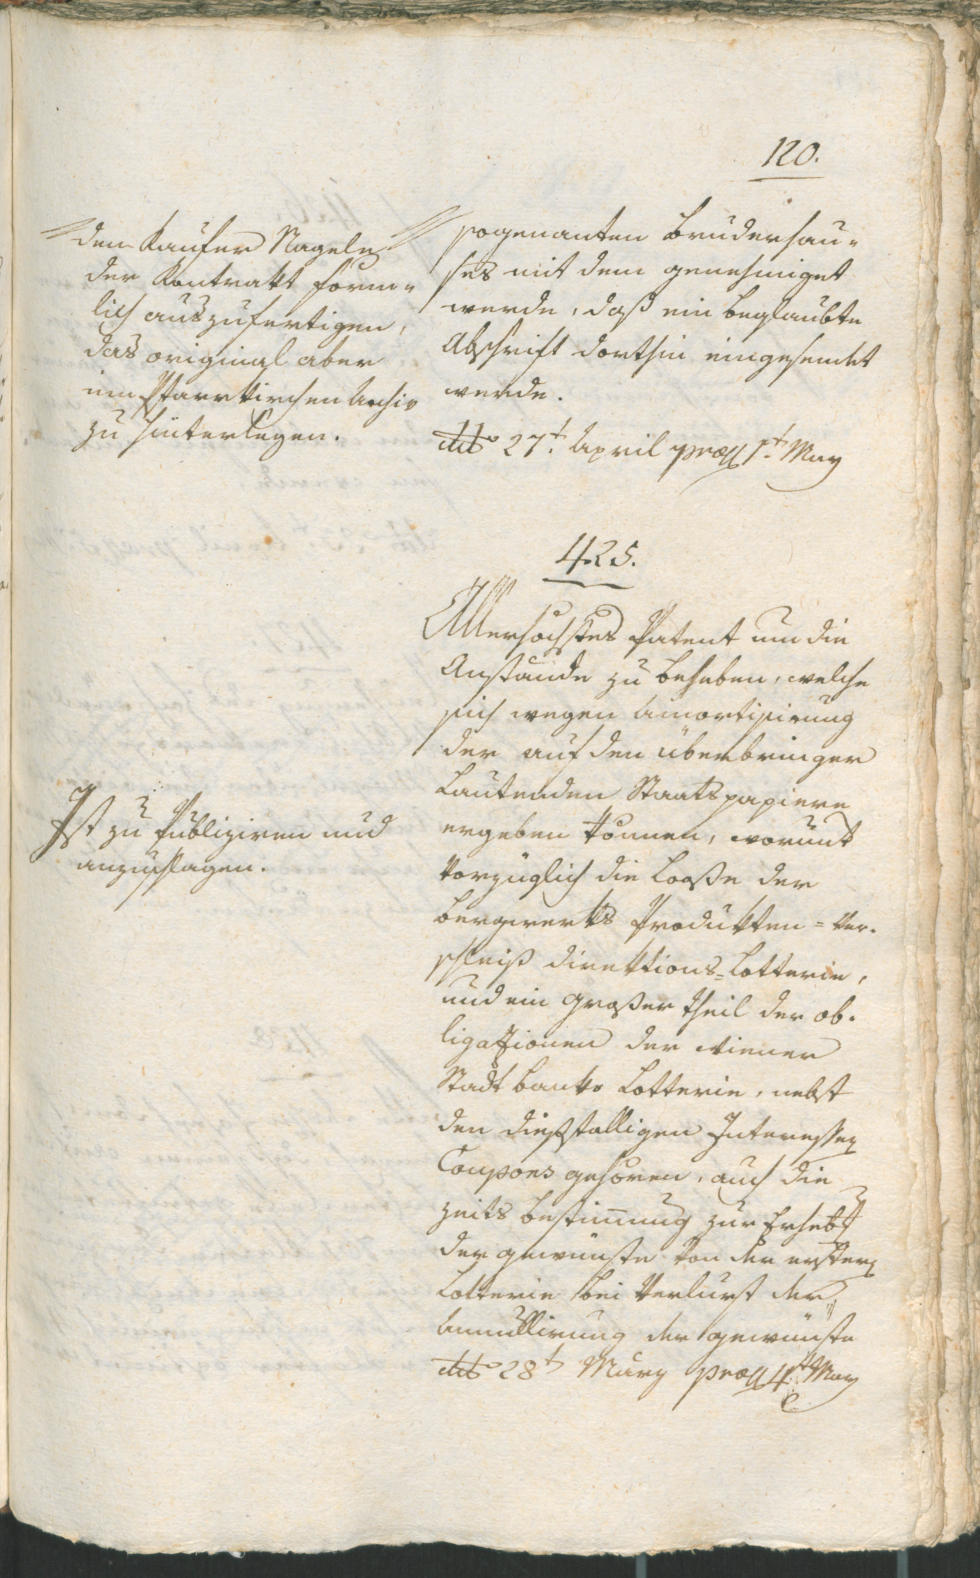 120.
dem Kaufer Nagele
der Kontrakt förm-
lich auszufertigen,
das original aber
im Pfarrkirchen Archiv
zu hinterlegen.
sogenanten Bruderhau-
ses mit dem genehmiget
werde, daß ein beglaubte
Abschrift dorthin eingesendet
werde.
ddto 27t. April præs 1t. May
425.
Allerhöchstes Patent um die
Anstände zu beheben, welche
sich wegen Amortisirung
der auf den überbringer
lautenden Staatspapiere
ergeben können, worunt
vorzüglich die Looße der
Bergwerks Produkten = Ver-
schleiß direktions=Lotterie,
und ein großer theil der ob-
ligazionen der wiener
Stadt banko Lotterie, nebst
den dießfälligen Interessen
Coupons gehören, auch die
zeits bestimmung zur Erhebg
der gewinste von der erstern
Lotterie bei Verlurst der
Annullirung der gewinste
ddto 28t März præs 4t. May
Ist zu Publiziren und
anzuschlagen.